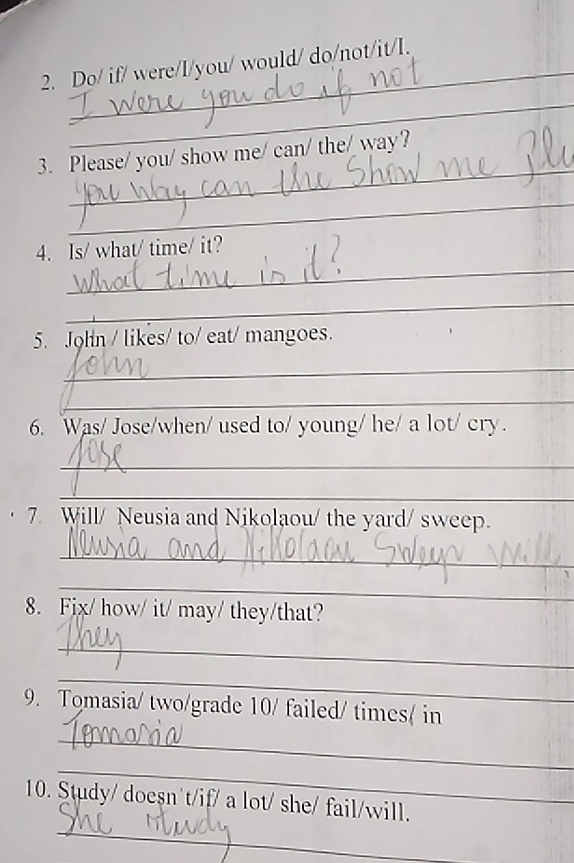 2. Do/ if/ were/I/you/ would/ do/not/it/I.
I were you do if not
3. Please/ you/ show me/ can/ the/ way?
You way can the Show me
4. Is/ what/ time/ it?
what time is it?
5. John / likes/ to/ eat/ mangoes.
John
6. Was/ Jose/when/ used to/ young/ he/ a lot/ cry.
Jose
7. Will/ Neusia and Nikolaou/ the yard/ sweep.
Neusia and Nikolaou Sweep will
8. Fix/ how/ it/ may/ they/that?
They
9. Tomasia/ two/grade 10/ failed/ times/ in
Tomasia
10. Study/ doesn't/if/ a lot/ she/ fail/will.
She study